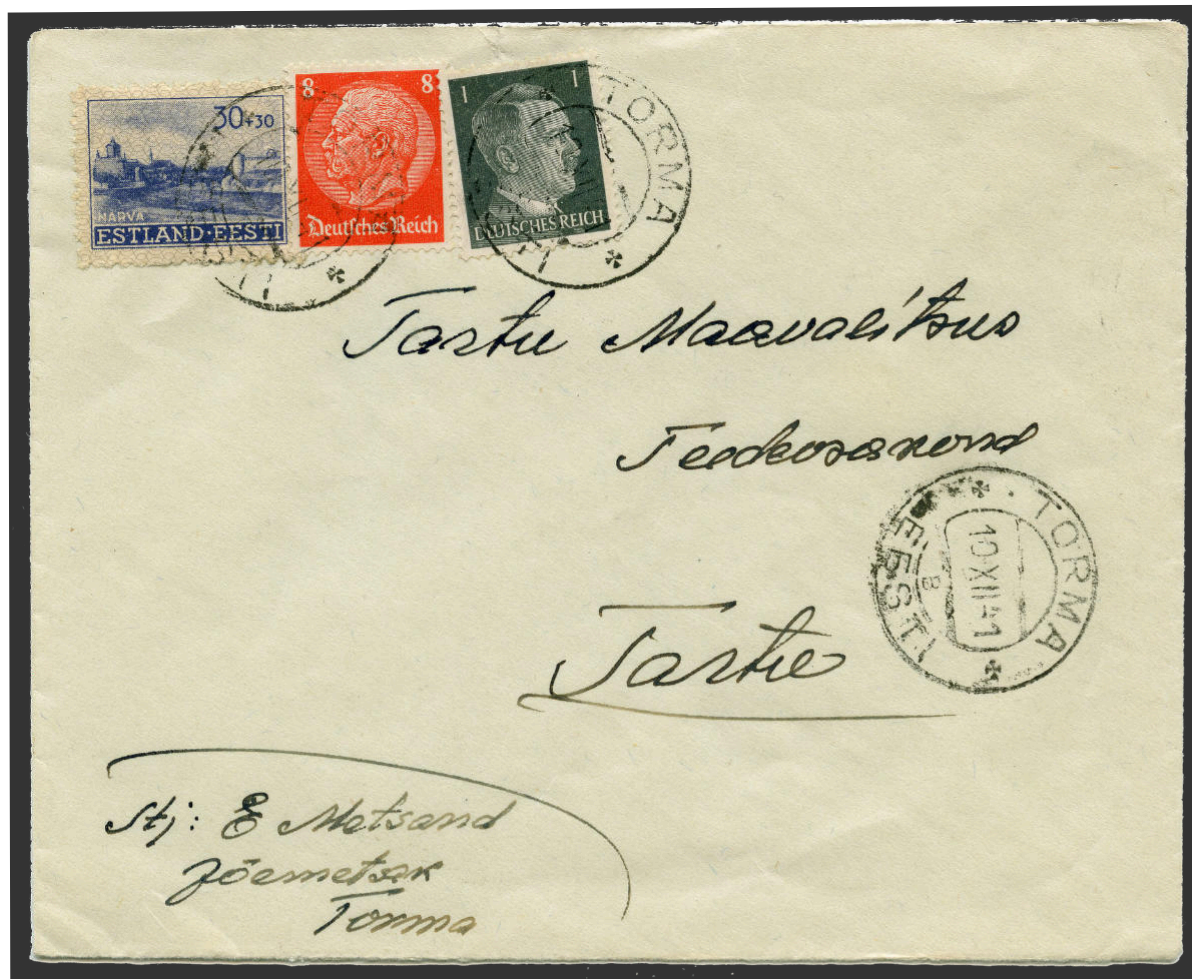 30+30
NARVA
ESTLAND-EESTI
8 8
Deutsches Reich
1 1
DEUTSCHES REICH
TORMA
Tartu Maavalitsus
Teedeosakond
TORMA
EESTI
10 XII 41
B
Tartu
Stj: E Metsand
Jõemetsk
Torma